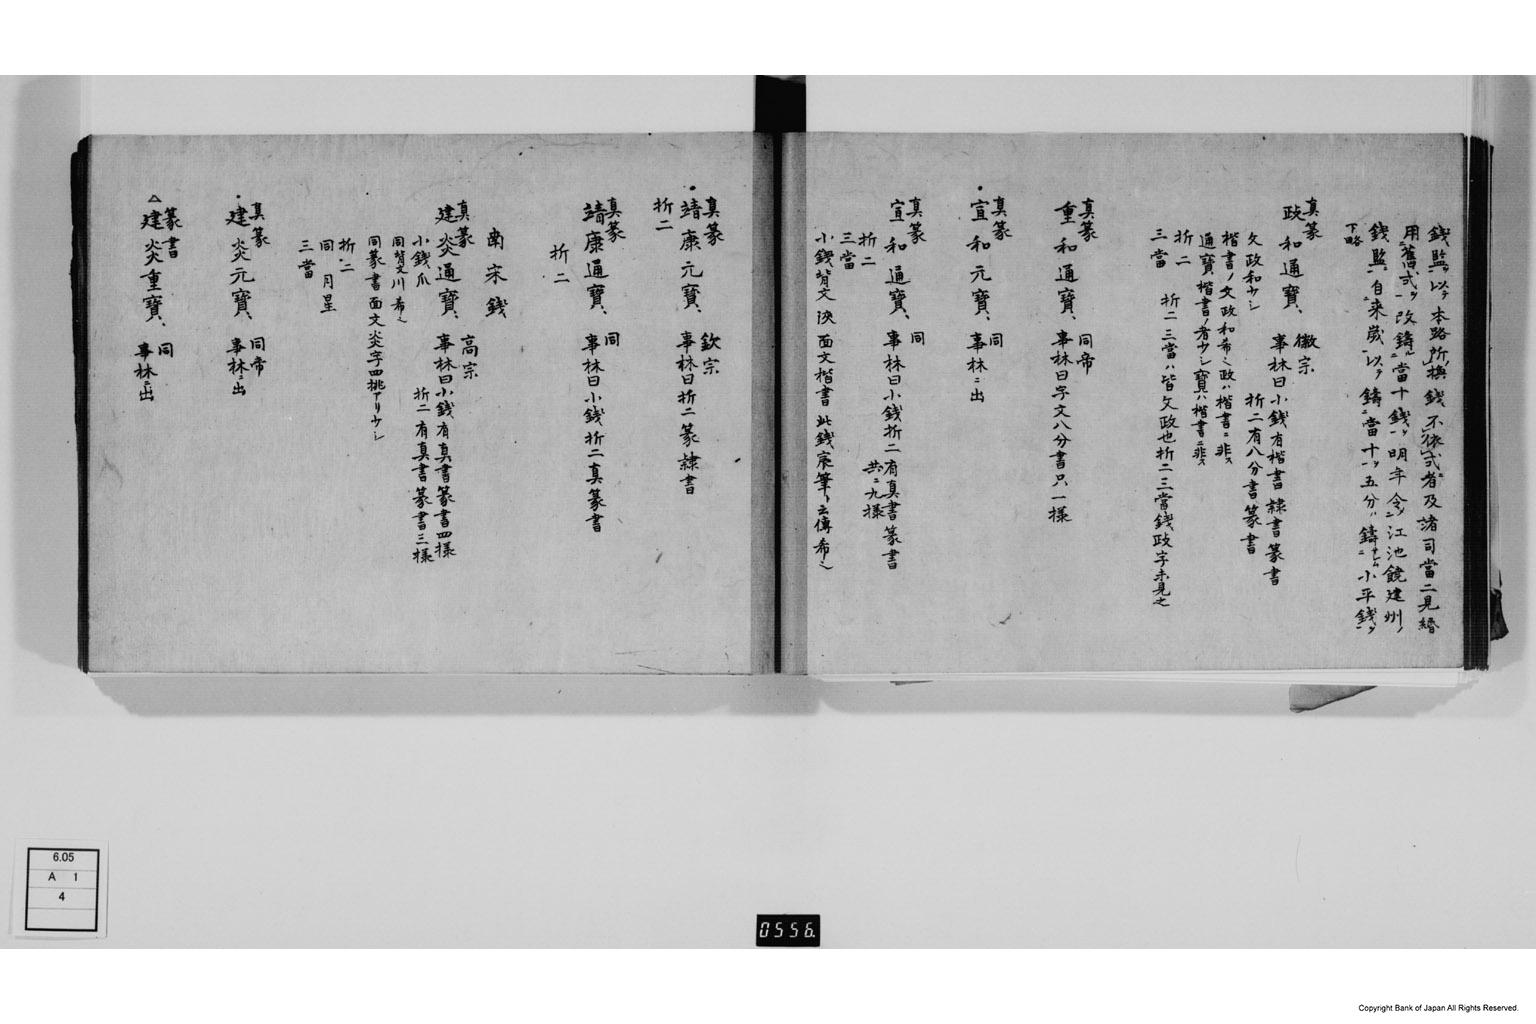 錢監ヲ以テ本路所換錢不依式者及諸司當二見緡
用舊式ヲ改鑄當十錢ヲ明年令江池饒建州ノ
錢監自来歳以テ鑄當十ヲ五分ハ鑄小平錢ヲ
下略
真篆
政和通寶、 徽宗
事林曰小錢有楷書隷書篆書
折二有八分書篆書
攵政和少シ
楷書ノ攵政和希シ政ハ楷書ニ非ス
通寶楷書ノ者少シ寶ハ楷書ニ非ス
折二
三當 折二三當ハ皆攵政也折二三當錢政字未見之
真篆
重和通寶、 同帝
事林曰字文八分書只一樣
真篆
宣和元寶、 同
事林ニ出
真篆
宣和通寶、 同
事林曰小錢折二有真書篆書
共ニ九樣
折二
三當
小錢背文陜 面文楷書 此錢宸筆ト云傳希シ
真篆
靖康元寶、 欽宗
事林曰折二篆隷書
折二
真篆
靖康通寶、 同
事林曰小錢折二真篆書
折二
南宋錢
真篆
建炎通寶、 高宗
事林曰小錢有真書篆書四樣
折二有真書篆書三樣
小錢爪
同背文川希シ
同篆書面文炎字四挑アリ少シ
折二
同月星
三當
真篆
建炎元寶、 同帝
事林ニ出
篆書
△建炎重寶、 同
事林ニ出
6.05
A 1
4
0556.
Copyright Bank of Japan All Rights Reserved.